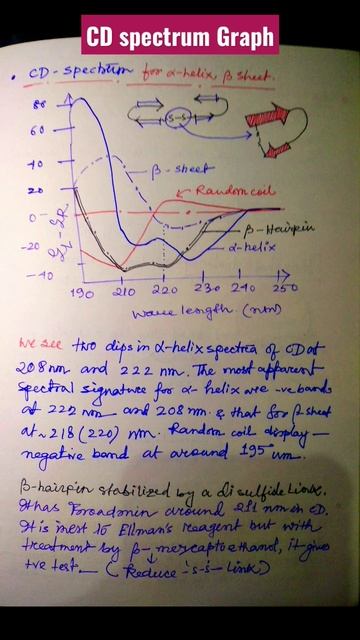 CD spectrum Graph
• CD-spectrum for α-helix, β sheet.
80
60
40
20
0
-20
-40
S-S
β-sheet
Random coil
β-Hairpin
α-helix
190 210 220 230 240 250
wave length. (nm)
We see two dips in α-helix spectra of CD at
208 nm and 222 nm. The most apparent
spectral signature for α-helix are -ve bands
at 222 nm and 208 nm. & that for β sheet
at ~ 218 (220) nm. Random coil display —
negative band at around 195 nm.
β-hairpin stabilized by a di sulfide link.
It has Broad min around 211 nm in CD.
It is inert to Ellman's reagent but with
treatment by β-mercaptoethanol, it gives
+ve test. — (Reduce -S-S- Link)